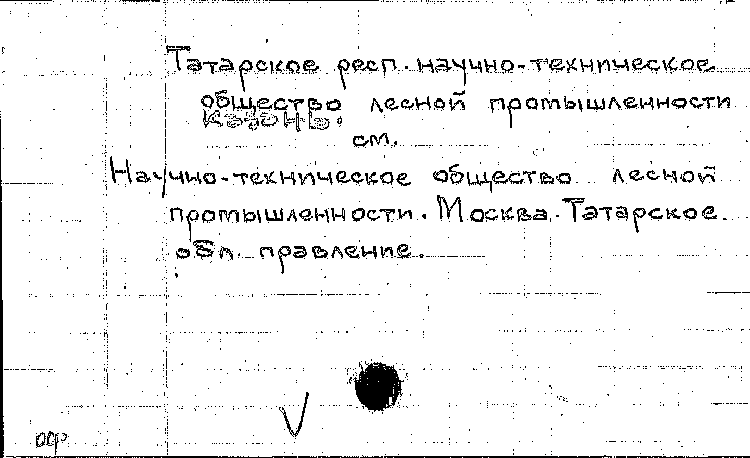 Татарское респ. научно-техническое
общество лесной промышленности
Казань.
см.
Научно-техническое общество лесной
промышленности. Москва. Татарское
обл. правление.